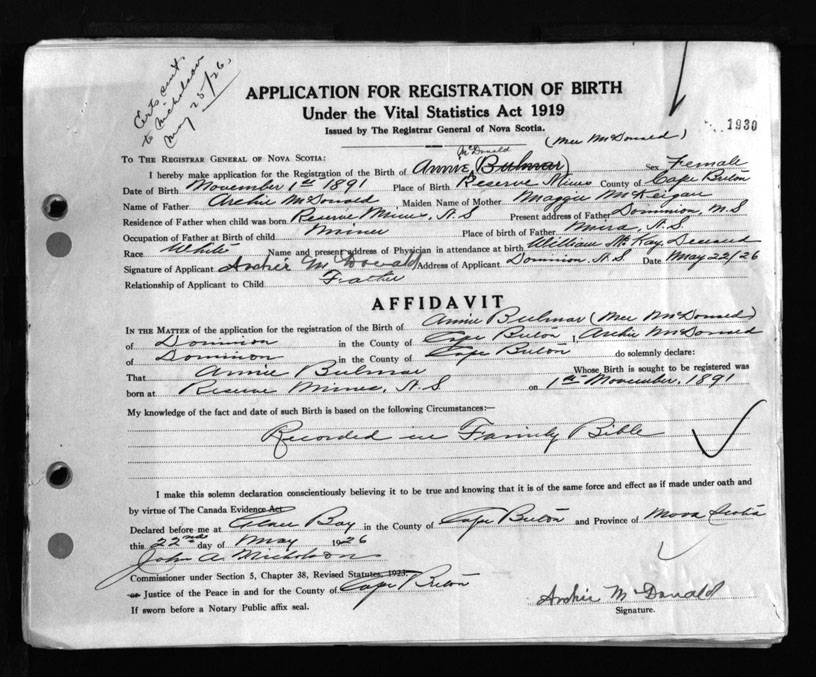 Certs sent
to Nicholson
May 25/26.
APPLICATION FOR REGISTRATION OF BIRTH
Under the Vital Statistics Act 1919
Issued by The Registrar General of Nova Scotia.
(Nee McDonald)
1930
McDonald
TO THE REGISTRAR GENERAL OF NOVA SCOTIA:
I hereby make application for the Registration of the Birth of Annie (Bulmar) Sex Female
Date of Birth November 1st 1891 Place of Birth Reserve Mines County of Cape Breton
Name of Father Archie McDonald, Maiden Name of Mother Maggie
Residence of Father when child was born Reserve Mines, N.S Present address of Father Dominion, N S
Occupation of Father at Birth of child Miner Place of birth of Father Mira, N.S
Race White Name and present address of Physician in attendance at birth William McKay, Deceased
Signature of Applicant Archie McDonald Address of Applicant Dominion, N.S Date May 22/26
Relationship of Applicant to Child Father
AFFIDAVIT
IN THE MATTER of the application for the registration of the Birth of Annie Bulmar (Nee McDonald)
of Dominion in the County of Cape Breton I Archie McDonald
of Dominion in the County of Cape Breton do solemnly declare:
That Annie Bulmar Whose Birth is sought to be registered was
born at Reserve Mines, N.S on 1st November, 1891
My knowledge of the fact and date of such Birth is based on the following Circumstances:—
Recorded in Family Bible
I make this solemn declaration conscientiously believing it to be true and knowing that it is of the same force and effect as if made under oath and
by virtue of The Canada Evidence Act.
Declared before me at Glace Bay in the County of Cape Breton and Province of Nova Scotia
this 22nd day of May 1926
John A. Nicholson
Commissioner under Section 5, Chapter 38, Revised Statutes, 1923.
or Justice of the Peace in and for the County of Cape Breton
If sworn before a Notary Public affix seal.
Archie McDonald
Signature.